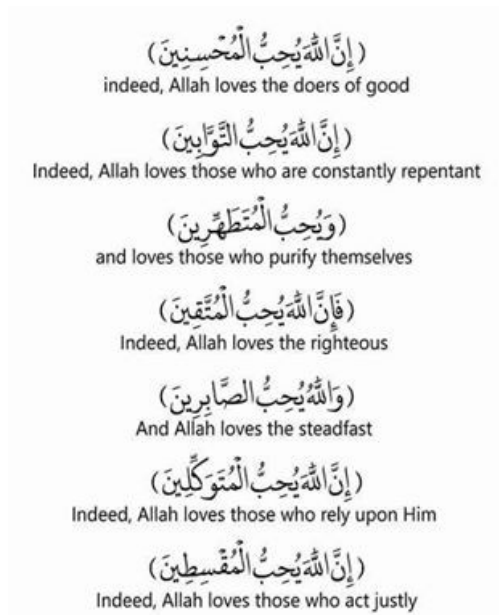 (إِنَّ اللَّهَ يُحِبُّ الْمُحْسِنِينَ)
indeed, Allah loves the doers of good
(إِنَّ اللَّهَ يُحِبُّ التَّوَّابِينَ)
Indeed, Allah loves those who are constantly repentant
(وَيُحِبُّ الْمُتَطَهِّرِينَ)
and loves those who purify themselves
(فَإِنَّ اللَّهَ يُحِبُّ الْمُتَّقِينَ)
Indeed, Allah loves the righteous
(وَاللَّهُ يُحِبُّ الصَّابِرِينَ)
And Allah loves the steadfast
(إِنَّ اللَّهَ يُحِبُّ الْمُتَوَكِّلِينَ)
Indeed, Allah loves those who rely upon Him
(إِنَّ اللَّهَ يُحِبُّ الْمُقْسِطِينَ)
Indeed, Allah loves those who act justly